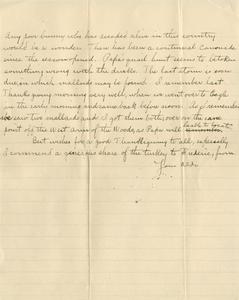 Any poor bunny who has escaped alive in this country
would be a wonder. There has been a continual
since the season opened. Papa's quail hunt seems to
something wrong with the ducks. The last storm is over
in which mallards may be found. I remember last
Thanksgiving morning very well, when we went over to
in the early morning and came back before noon. As I remember
we saw two mallards and I got them both, over on the
point of the West Arm of the Woods, as Papa will
Best wishes for a good Thanksgiving to all, especially
I recommend a generous share of the turkey to Frederic, from
Your